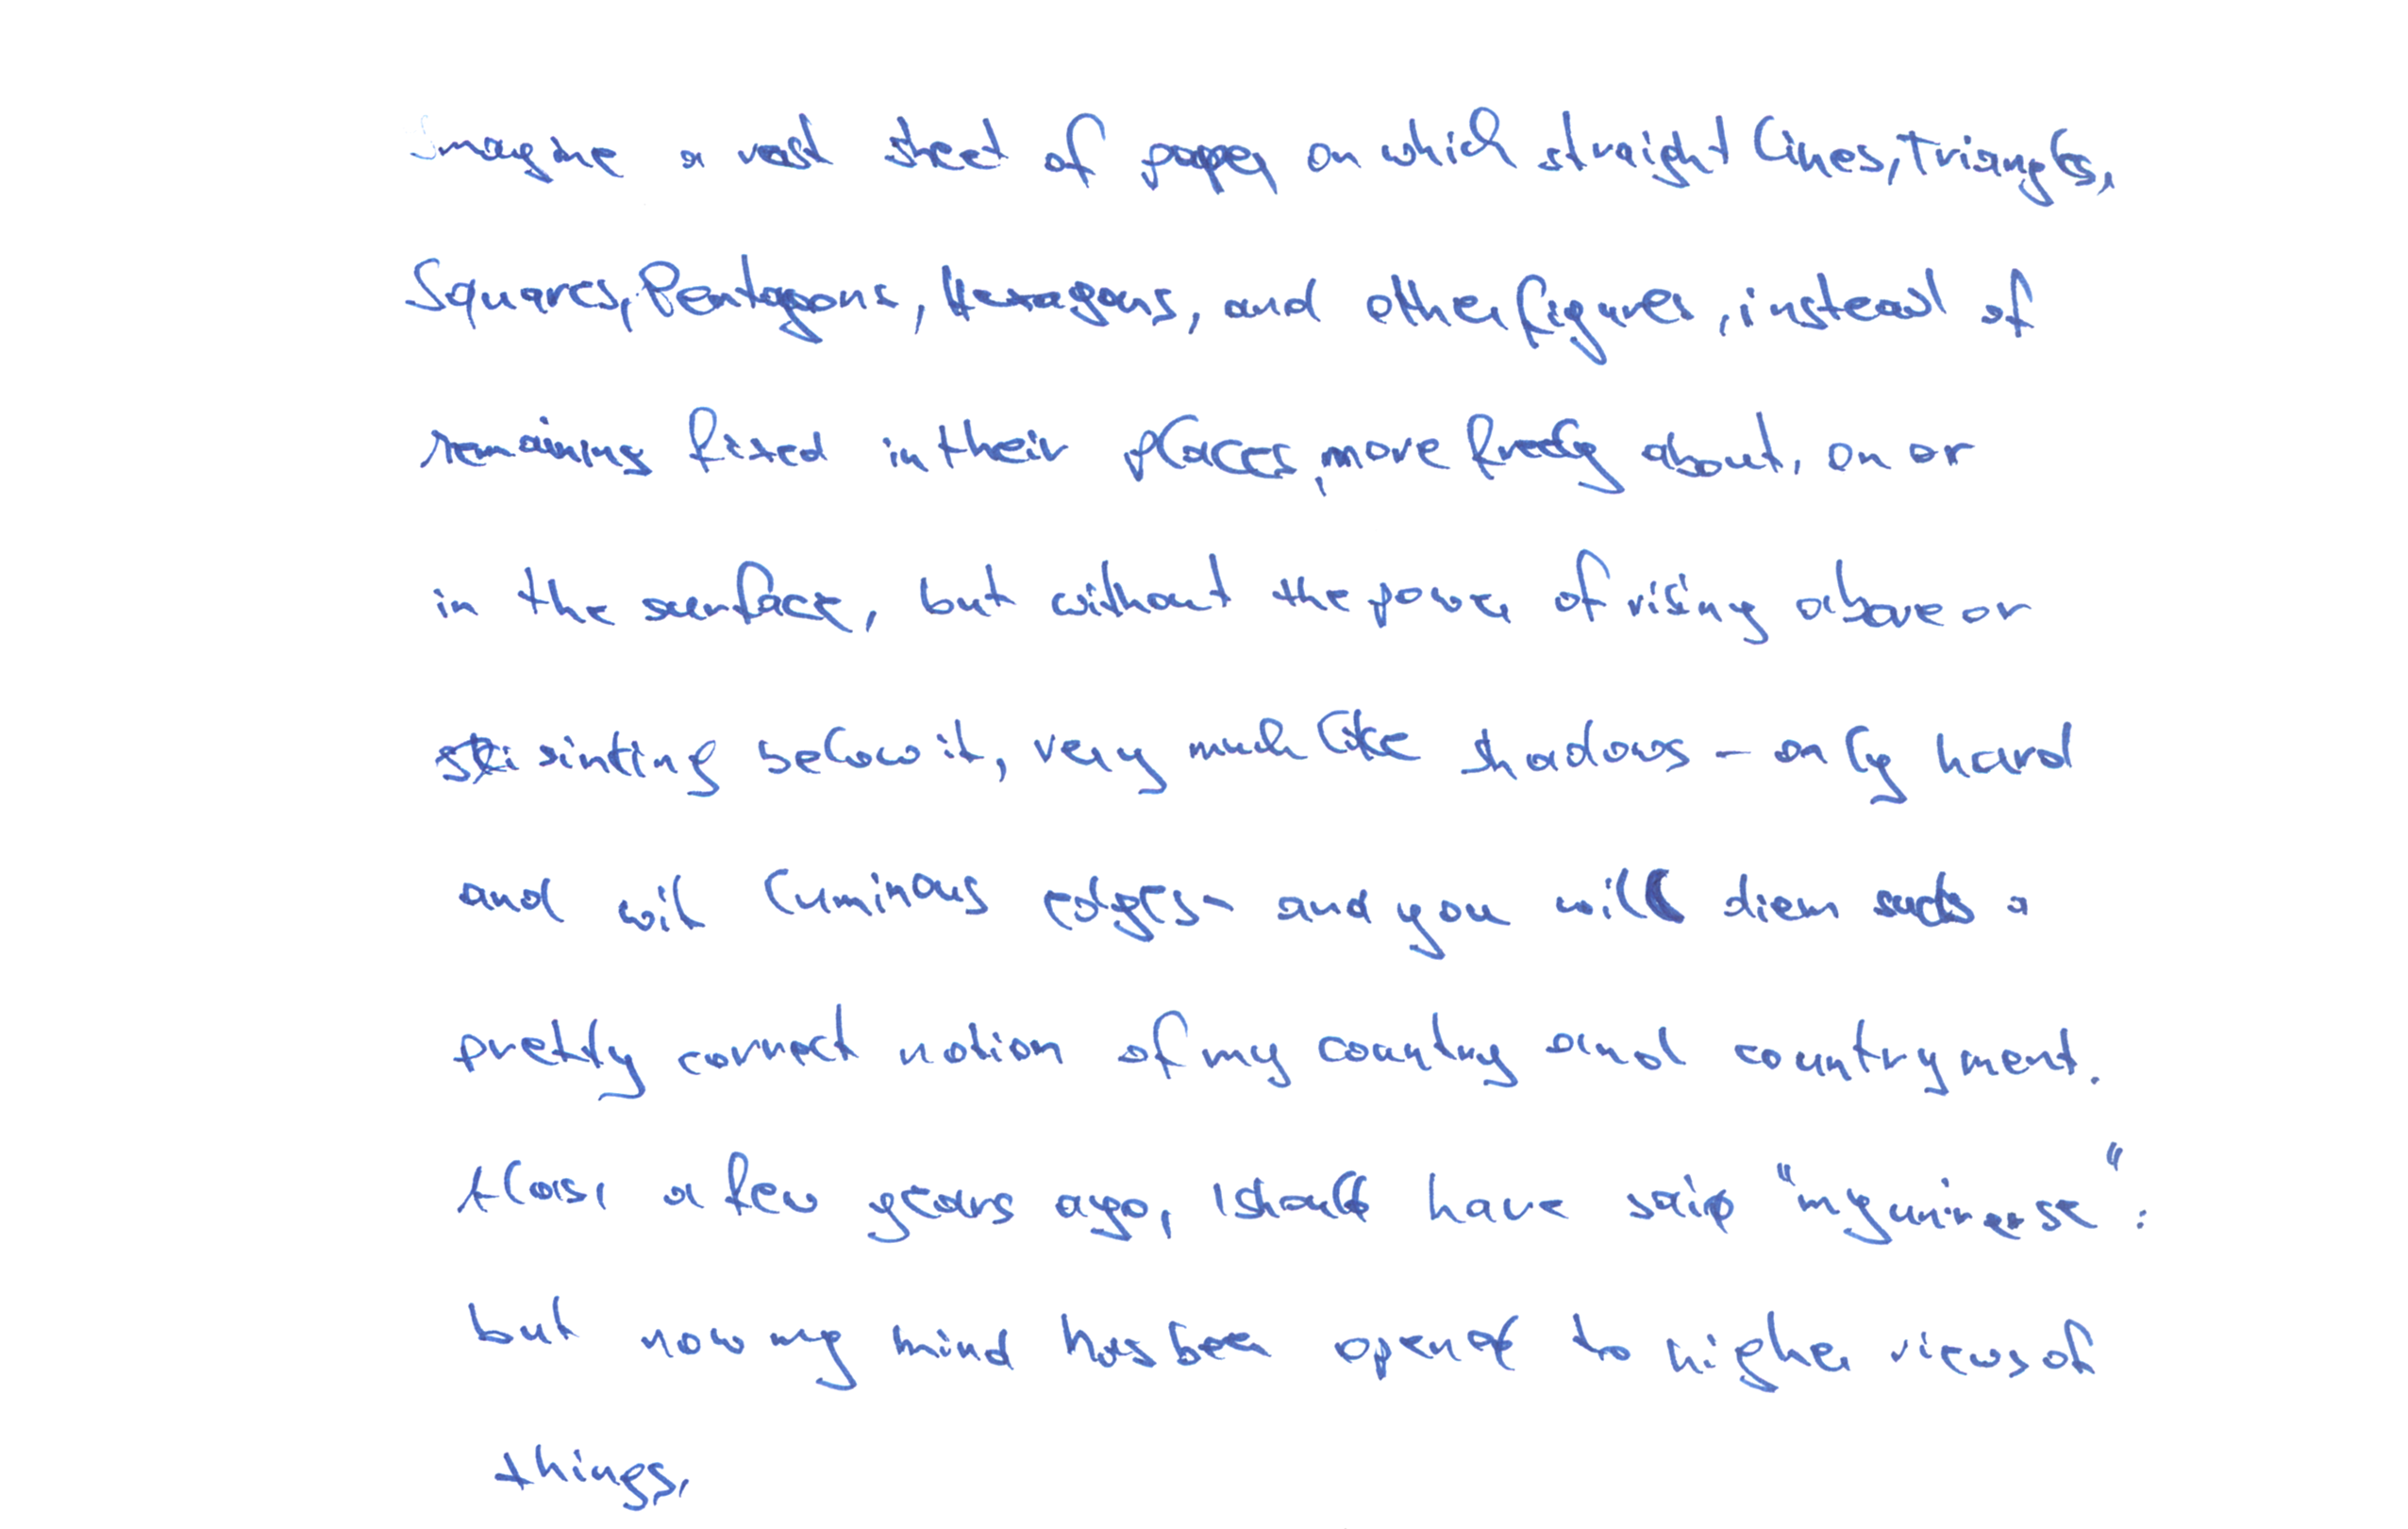 Imagine a vast sheet of paper on which straight Lines, Triangles,
Squares, Pentagons, Hexagons, and other figures, instead of
remaining fixed in their places, move freely about, on or
in the surface, but without the power of rising above or
sinking below it, very much like shadows - only hard
and wit luminous edges - and you will then such a
pretty correct notion of my country and countryment.
Alas, a few years ago, I should have said "my universe":
but now my mind has been opened to higher views of
things.